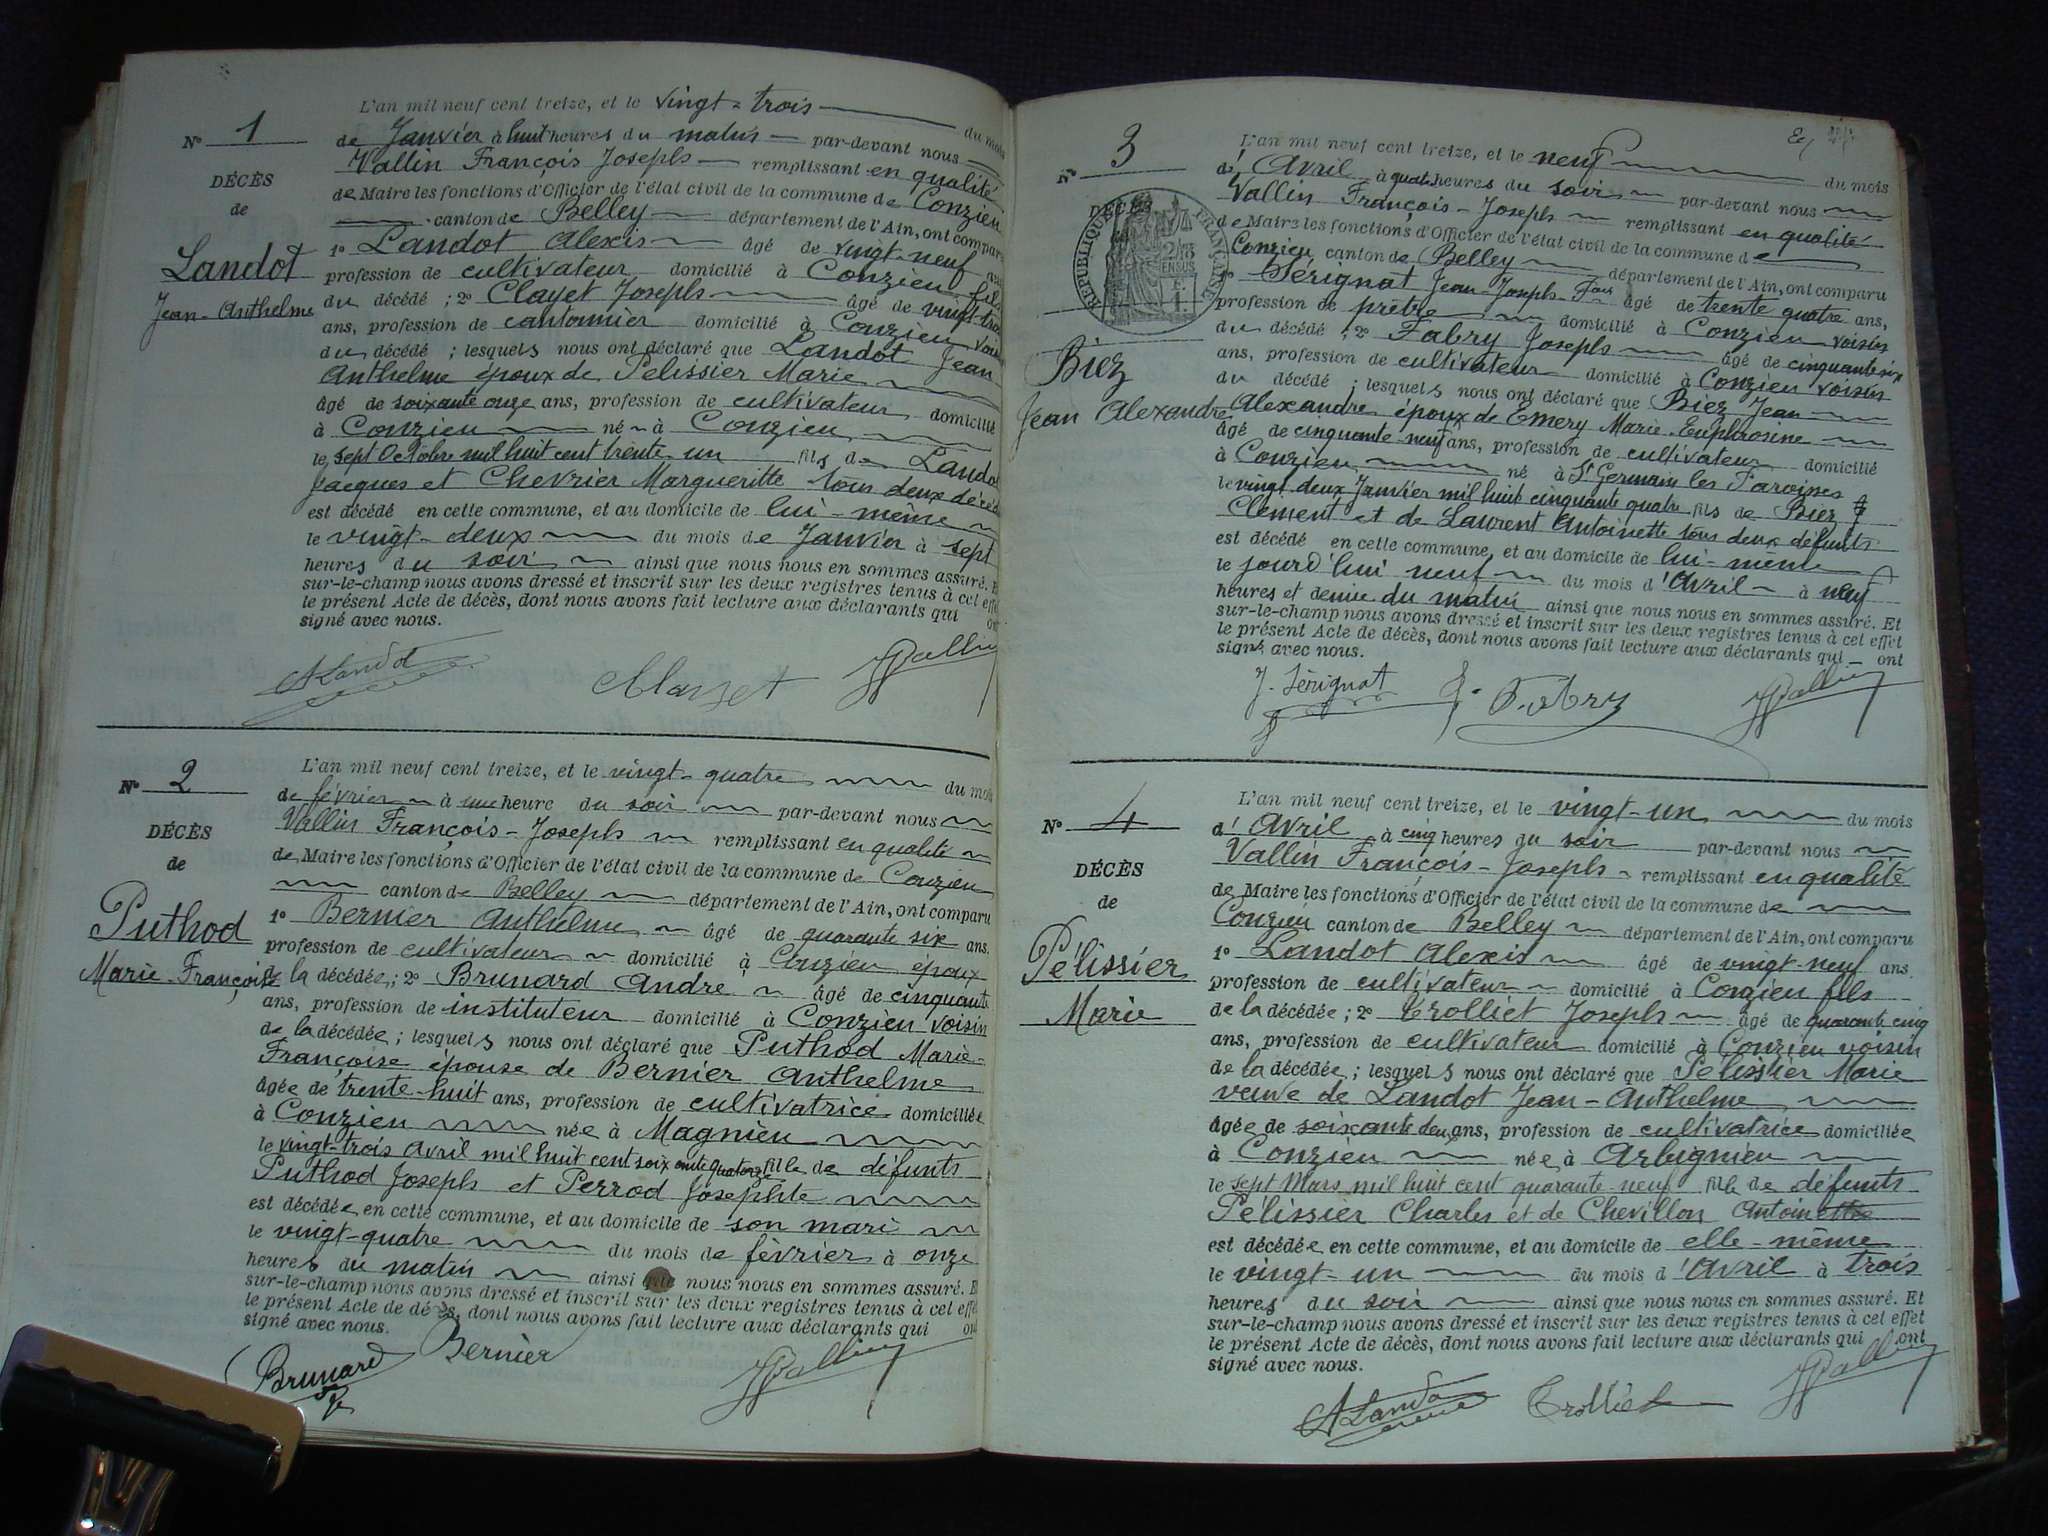 L'an mil neuf cent treize, et le vingt-trois du mois
N° 1
de Janvier à huit heures du matin par-devant nous
Vallin François Joseph remplissant en qualité
DÉCÈS
de Maire les fonctions d'Officier de l'état civil de la commune de Conzieu
de
canton de Belley département de l'Ain, ont comparu
Landot
1° Landot Alexis âgé de vingt-neuf ans
profession de cultivateur domicilié à Conzieu fils
Jean-Anthelme
du décédé ; 2° Clayet Joseph âgé de vingt-trois
ans, profession de cantonnier domicilié à Conzieu voisin
du décédé ; lesquels nous ont déclaré que Landot Jean
Anthelme époux de Pélissier Marie
âgé de soixante onze ans, profession de cultivateur domicilié
à Conzieu né à Conzieu
le sept Octobre mil huit cent trente un fils de Landot
Jacques et Chevrier Margueritte tous deux décédés
est décédé en cette commune, et au domicile de lui-même
le vingt-deux du mois de Janvier à sept
heures du soir ainsi que nous nous en sommes assuré. Et
sur-le-champ nous avons dressé et inscrit sur les deux registres tenus à cet effet
le présent Acte de décès, dont nous avons fait lecture aux déclarants qui ont
signé avec nous.
A Landot Vallin
L'an mil neuf cent treize, et le vingt-quatre du mois
N° 2
de février à une heure du soir par-devant nous
Vallin François-Joseph remplissant en qualité
DÉCÈS
de Maire les fonctions d'Officier de l'état civil de la commune de Conzieu
de
canton de Belley département de l'Ain, ont comparu
Puthod
1° Bernier Anthelme âgé de quarante six ans.
profession de cultivateur domicilié à Conzieu époux
Marie Françoise
de la décédée ; 2° Brunard André âgé de cinquante
ans, profession de instituteur domicilié à Conzieu voisin
de la décédée ; lesquels nous ont déclaré que Puthod Marie-
Françoise épouse de Bernier Anthelme
âgée de trente-huit ans, profession de cultivatrice domiciliée
à Conzieu née à Magnieu
le vingt-trois avril mil huit cent soixante quatorze fille de défunts
Puthod Joseph et Perrod Josephte
est décédée en cette commune, et au domicile de son mari
le vingt-quatre du mois de février à onze
heures du matin ainsi que nous nous en sommes assuré. Et
sur-le-champ nous avons dressé et inscrit sur les deux registres tenus à cet effet
le présent Acte de décès, dont nous avons fait lecture aux déclarants qui ont
signé avec nous.
Brunard Bernier Vallin
L'an mil neuf cent treize, et le neuf du mois
N° 3
d'Avril à quatre heures du soir par-devant nous
Vallin François-Joseph remplissant en qualité
DÉCÈS
RÉPUBLIQUE FRANÇAISE
2/10 EN SUS
de Maire les fonctions d'Officier de l'état civil de la commune de
Conzieu canton de Belley département de l'Ain, ont comparu
1° Sérignat Jean-Joseph-Fois âgé de trente quatre ans,
profession de prêtre domicilié à Conzieu voisin
du décédé ; 2° Fabry Joseph âgé de cinquante six
Biez
ans, profession de cultivateur domicilié à Conzieu voisin
du décédé ; lesquels nous ont déclaré que Biez Jean
Jean Alexandre
Alexandre époux de Emery Marie Euphrosine
âgé de cinquante-neuf ans, profession de cultivateur domicilié
à Conzieu né à St Germain les Paroisses
le vingt deux Janvier mil huit cinquante quatre fils de Biez
Clément et de Laurent Antoinette tous deux défunts
est décédé en cette commune, et au domicile de lui-même
le jourd'hui neuf du mois d'Avril à neuf
heures et demie du matin ainsi que nous nous en sommes assuré. Et
sur-le-champ nous avons dressé et inscrit sur les deux registres tenus à cet effet
le présent Acte de décès, dont nous avons fait lecture aux déclarants qui ont
signé avec nous.
J. Sérignat J. Fabry Vallin
L'an mil neuf cent treize, et le vingt-un du mois
N° 4
d'Avril à cinq heures du soir par-devant nous
Vallin François-Joseph remplissant en qualité
DÉCÈS
de Maire les fonctions d'Officier de l'état civil de la commune de
de
Conzieu canton de Belley département de l'Ain, ont comparu
Pélissier
1° Landot Alexis âgé de vingt-neuf ans
profession de cultivateur domicilié à Conzieu fils
Marie
de la décédée ; 2° Trolliet Joseph âgé de quarante cinq
ans, profession de cultivateur domicilié à Conzieu voisin
de la décédée ; lesquels nous ont déclaré que Pélissier Marie
veuve de Landot Jean-Anthelme
âgée de soixante deux ans, profession de cultivatrice domiciliée
à Conzieu née à Arbignieu
le sept Mars mil huit cent quarante-neuf fille de défunts
Pélissier Charles et de Chevillon Antoinette
est décédée en cette commune, et au domicile de elle-même
le vingt-un du mois d'Avril à trois
heures du soir ainsi que nous nous en sommes assuré. Et
sur-le-champ nous avons dressé et inscrit sur les deux registres tenus à cet effet
le présent Acte de décès, dont nous avons fait lecture aux déclarants qui ont
signé avec nous.
A Landot Trolliet Vallin